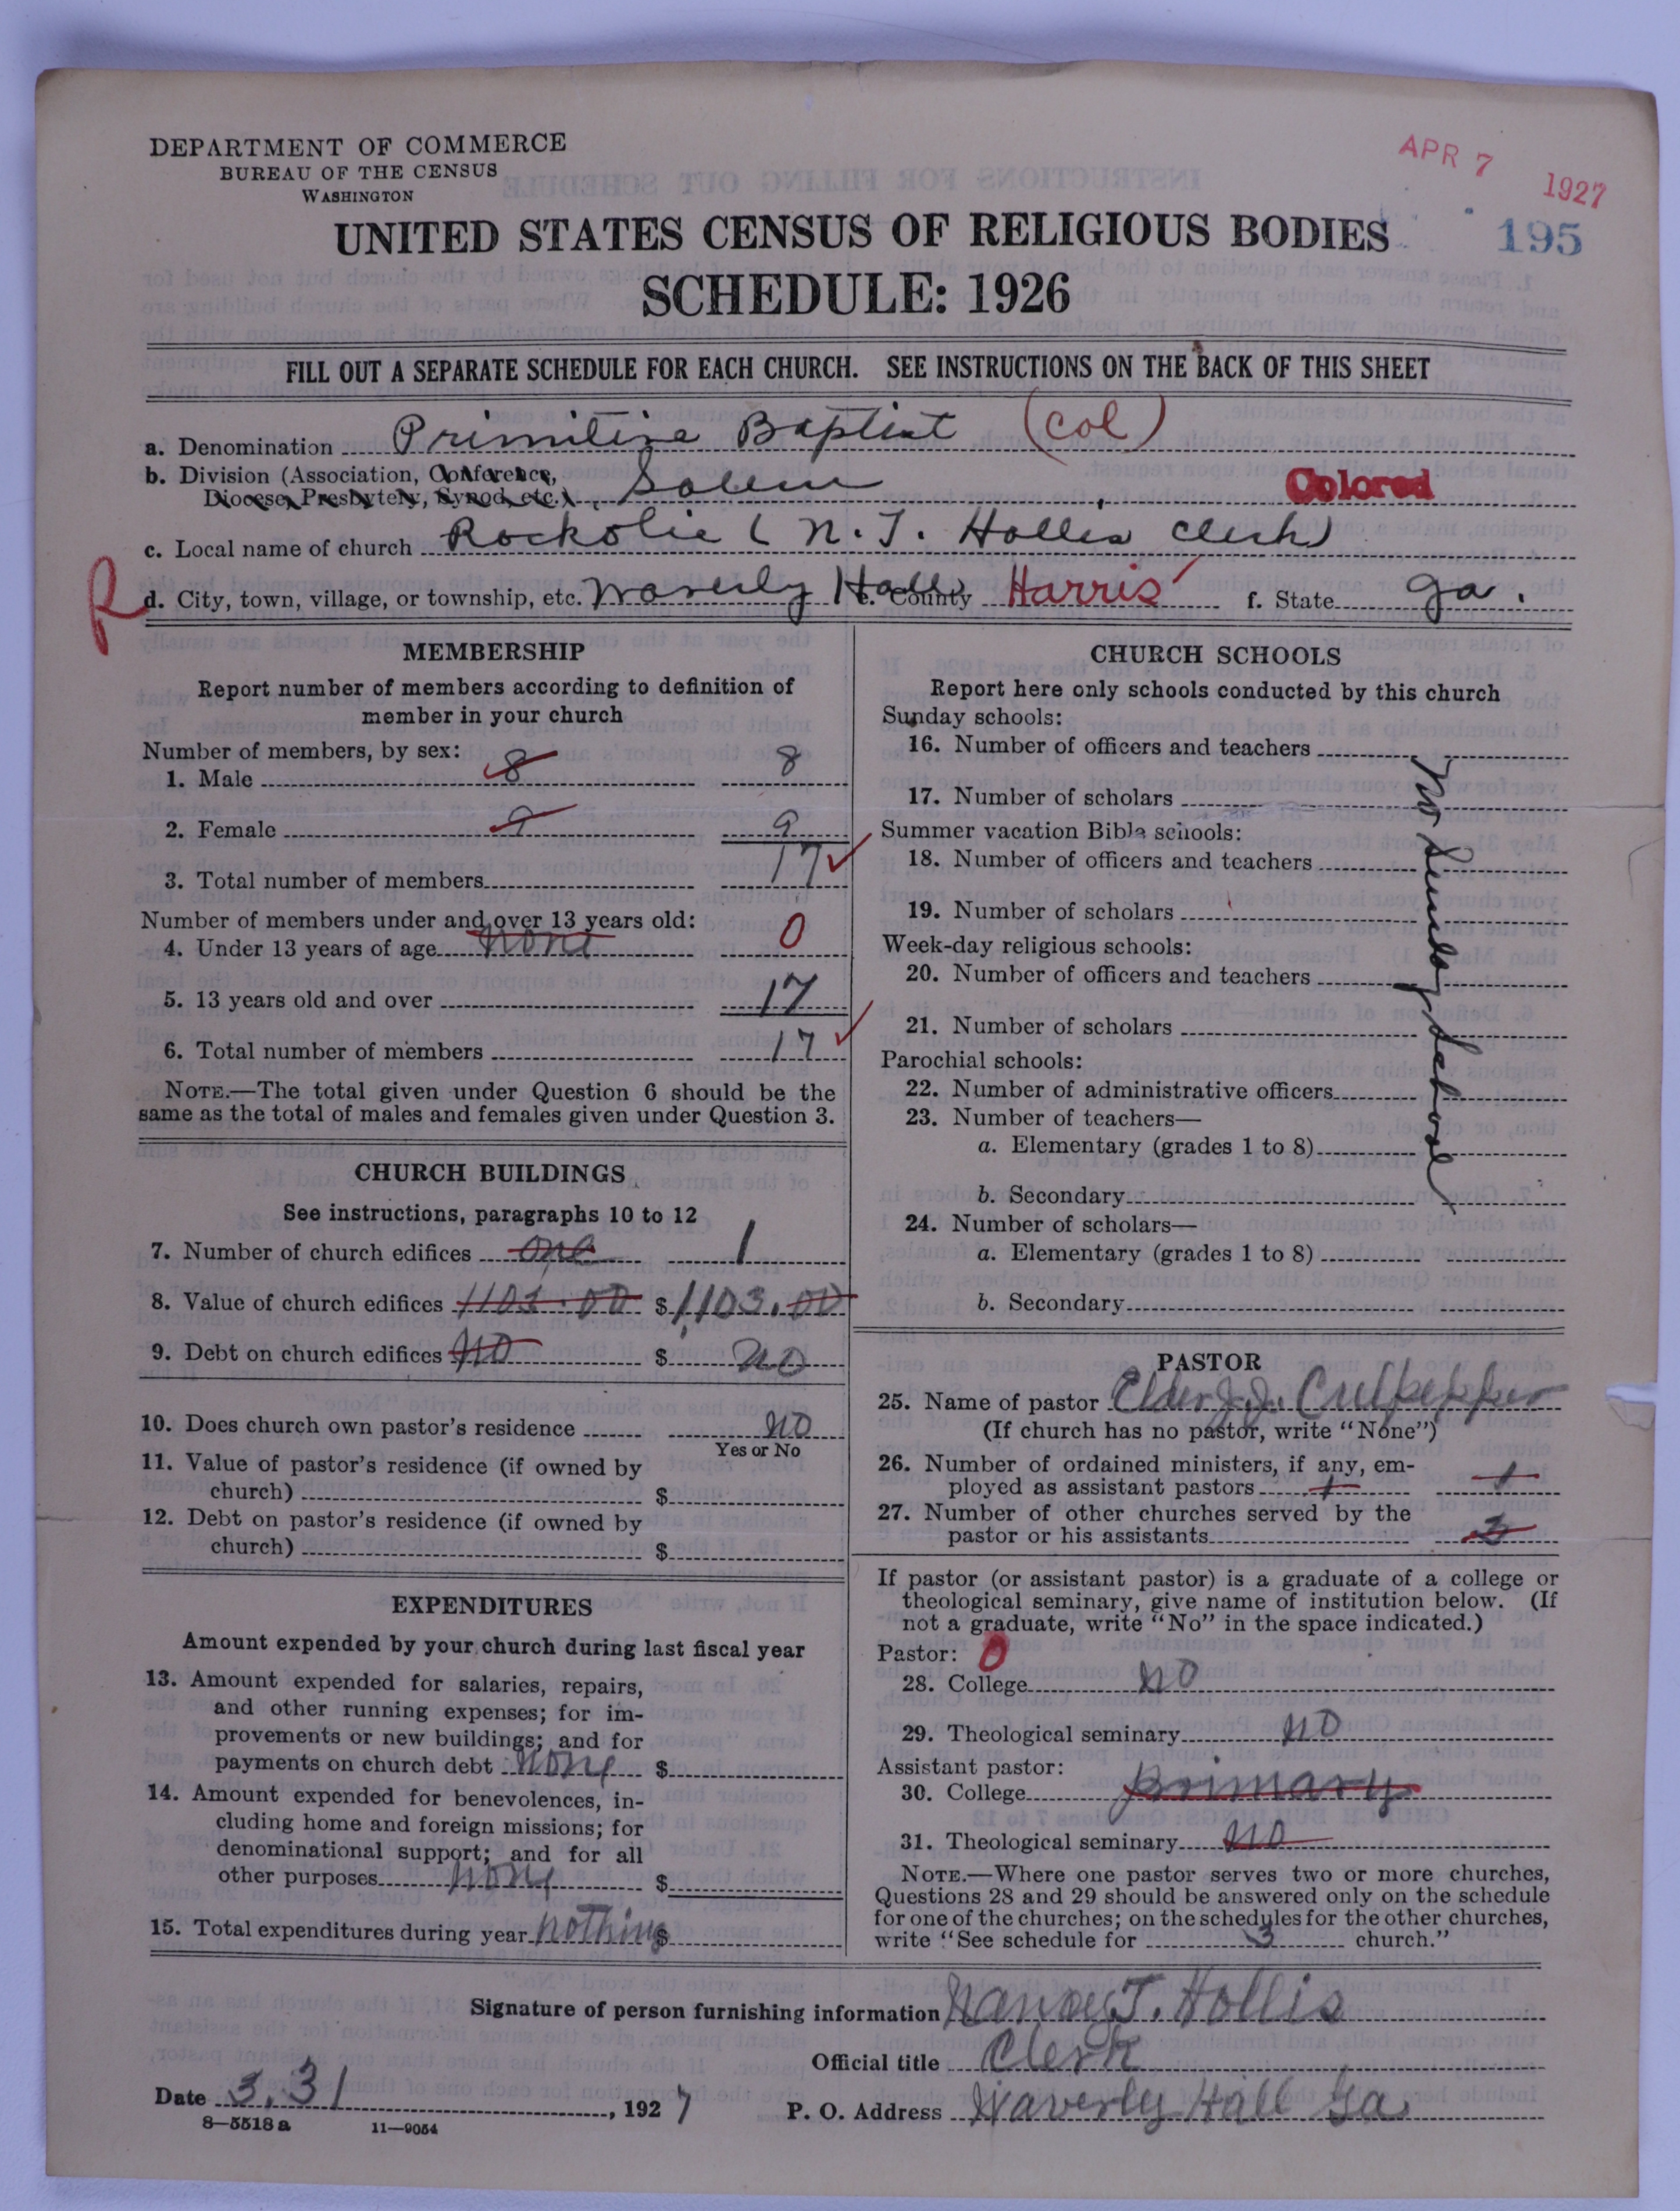 DEPARTMENT OF COMMERCE
BUREAU OF THE CENSUS
WASHINGTON
APR 7 1927
195
UNITED STATES CENSUS OF RELIGIOUS BODIES
SCHEDULE: 1926
FILL OUT A SEPARATE SCHEDULE FOR EACH CHURCH. SEE INSTRUCTIONS ON THE BACK OF THIS SHEET
a. Denomination Primitive Baptist (Col)
b. Division (Association, Conference,
Diocese, Presbytery, Synod, etc.) Salem Colored
c. Local name of church (N. T. Hollis Clerk)
R
d. City, town, village, or township, etc. Waverly Hall e. County Harris f. State Ga.
MEMBERSHIP
Report number of members according to definition of
member in your church
Number of members, by sex:
1. Male 8 8
2. Female 9 9
3. Total number of members 17
Number of members under and over 13 years old:
4. Under 13 years of age none 0
5. 13 years old and over 17
6. Total number of members 17
NOTE.—The total given under Question 6 should be the
same as the total of males and females given under Question 3.
CHURCH BUILDINGS
See instructions, paragraphs 10 to 12
7. Number of church edifices one 1
8. Value of church edifices 1103.00 $ 1103.00
9. Debt on church edifices no $ no
10. Does church own pastor's residence no
Yes or No
11. Value of pastor's residence (if owned by
church) $
12. Debt on pastor's residence (if owned by
church) $
EXPENDITURES
Amount expended by your church during last fiscal year
13. Amount expended for salaries, repairs,
and other running expenses; for im-
provements or new buildings; and for
payments on church debt none $
14. Amount expended for benevolences, in-
cluding home and foreign missions; for
denominational support; and for all
other purposes none $
15. Total expenditures during year nothing $
CHURCH SCHOOLS
Report here only schools conducted by this church
Sunday schools:
16. Number of officers and teachers
17. Number of scholars
Summer vacation Bible schools:
18. Number of officers and teachers
19. Number of scholars
Week-day religious schools:
20. Number of officers and teachers
21. Number of scholars
Parochial schools:
22. Number of administrative officers
23. Number of teachers—
a. Elementary (grades 1 to 8)
b. Secondary
24. Number of scholars—
a. Elementary (grades 1 to 8)
b. Secondary
No Sunday School
PASTOR
25. Name of pastor Elder J. J. Culpepper
(If church has no pastor, write "None")
26. Number of ordained ministers, if any, em-
ployed as assistant pastors 1 1
27. Number of other churches served by the
pastor or his assistants 3
If pastor (or assistant pastor) is a graduate of a college or
theological seminary, give name of institution below. (If
not a graduate, write "No" in the space indicated.)
Pastor: 0
28. College no
29. Theological seminary no
Assistant pastor:
30. College primary
31. Theological seminary no
NOTE.—Where one pastor serves two or more churches,
Questions 28 and 29 should be answered only on the schedule
for one of the churches; on the schedules for the other churches,
write "See schedule for 3 church."
Signature of person furnishing information Nancy T. Hollis
Official title Clerk
Date 3.31, 1927
P. O. Address Waverly Hall Ga
8—5518 a 11—9054